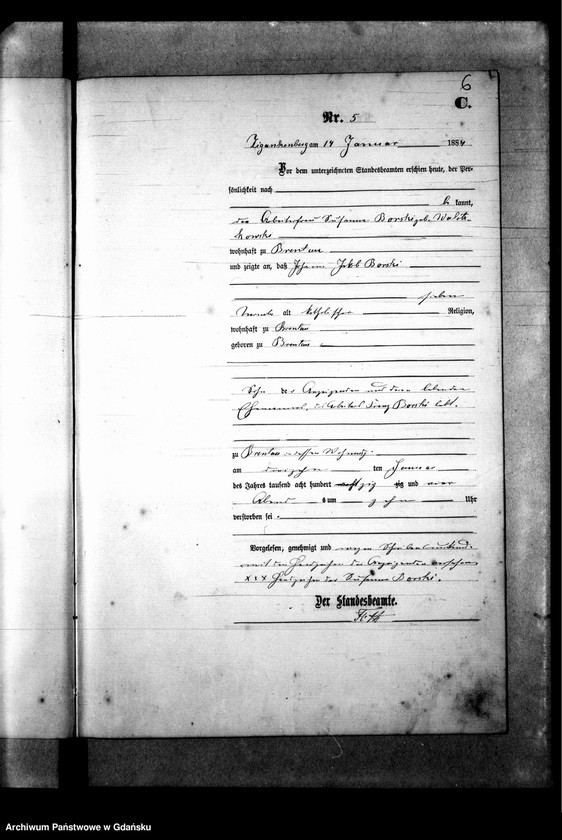 6
C.
Nr. 5
Zigankenberg am 14 Januar 1884
Vor dem unterzeichneten Standesbeamten erschien heute, der Per-
sönlichkeit nach
be kannt,
die Arbeiterfrau Susanna Borski geb.
wohnhaft zu Brentau
und zeigte an, daß Johann Jakob Borski
sieben
Monate alt katholischer Religion,
wohnhaft zu Brentau
geboren zu Brentau
Sohn der Anzeigenden und deren lebenden
Ehemannes, des Arbeiters Franz Borski
zu Brentau in dessen Wohnung
am dreizehn ten Januar
des Jahres tausend acht hundert achtzig und vier
Abends um zehn Uhr
verstorben sei.
Vorgelesen, genehmigt und wegen Schreibensunkunde
mit den Handzeichen der Anzeigenden versehen
XXX Handzeichen der Susanna Borski.
Der Standesbeamte.
Archiwum Państwowe w Gdańsku